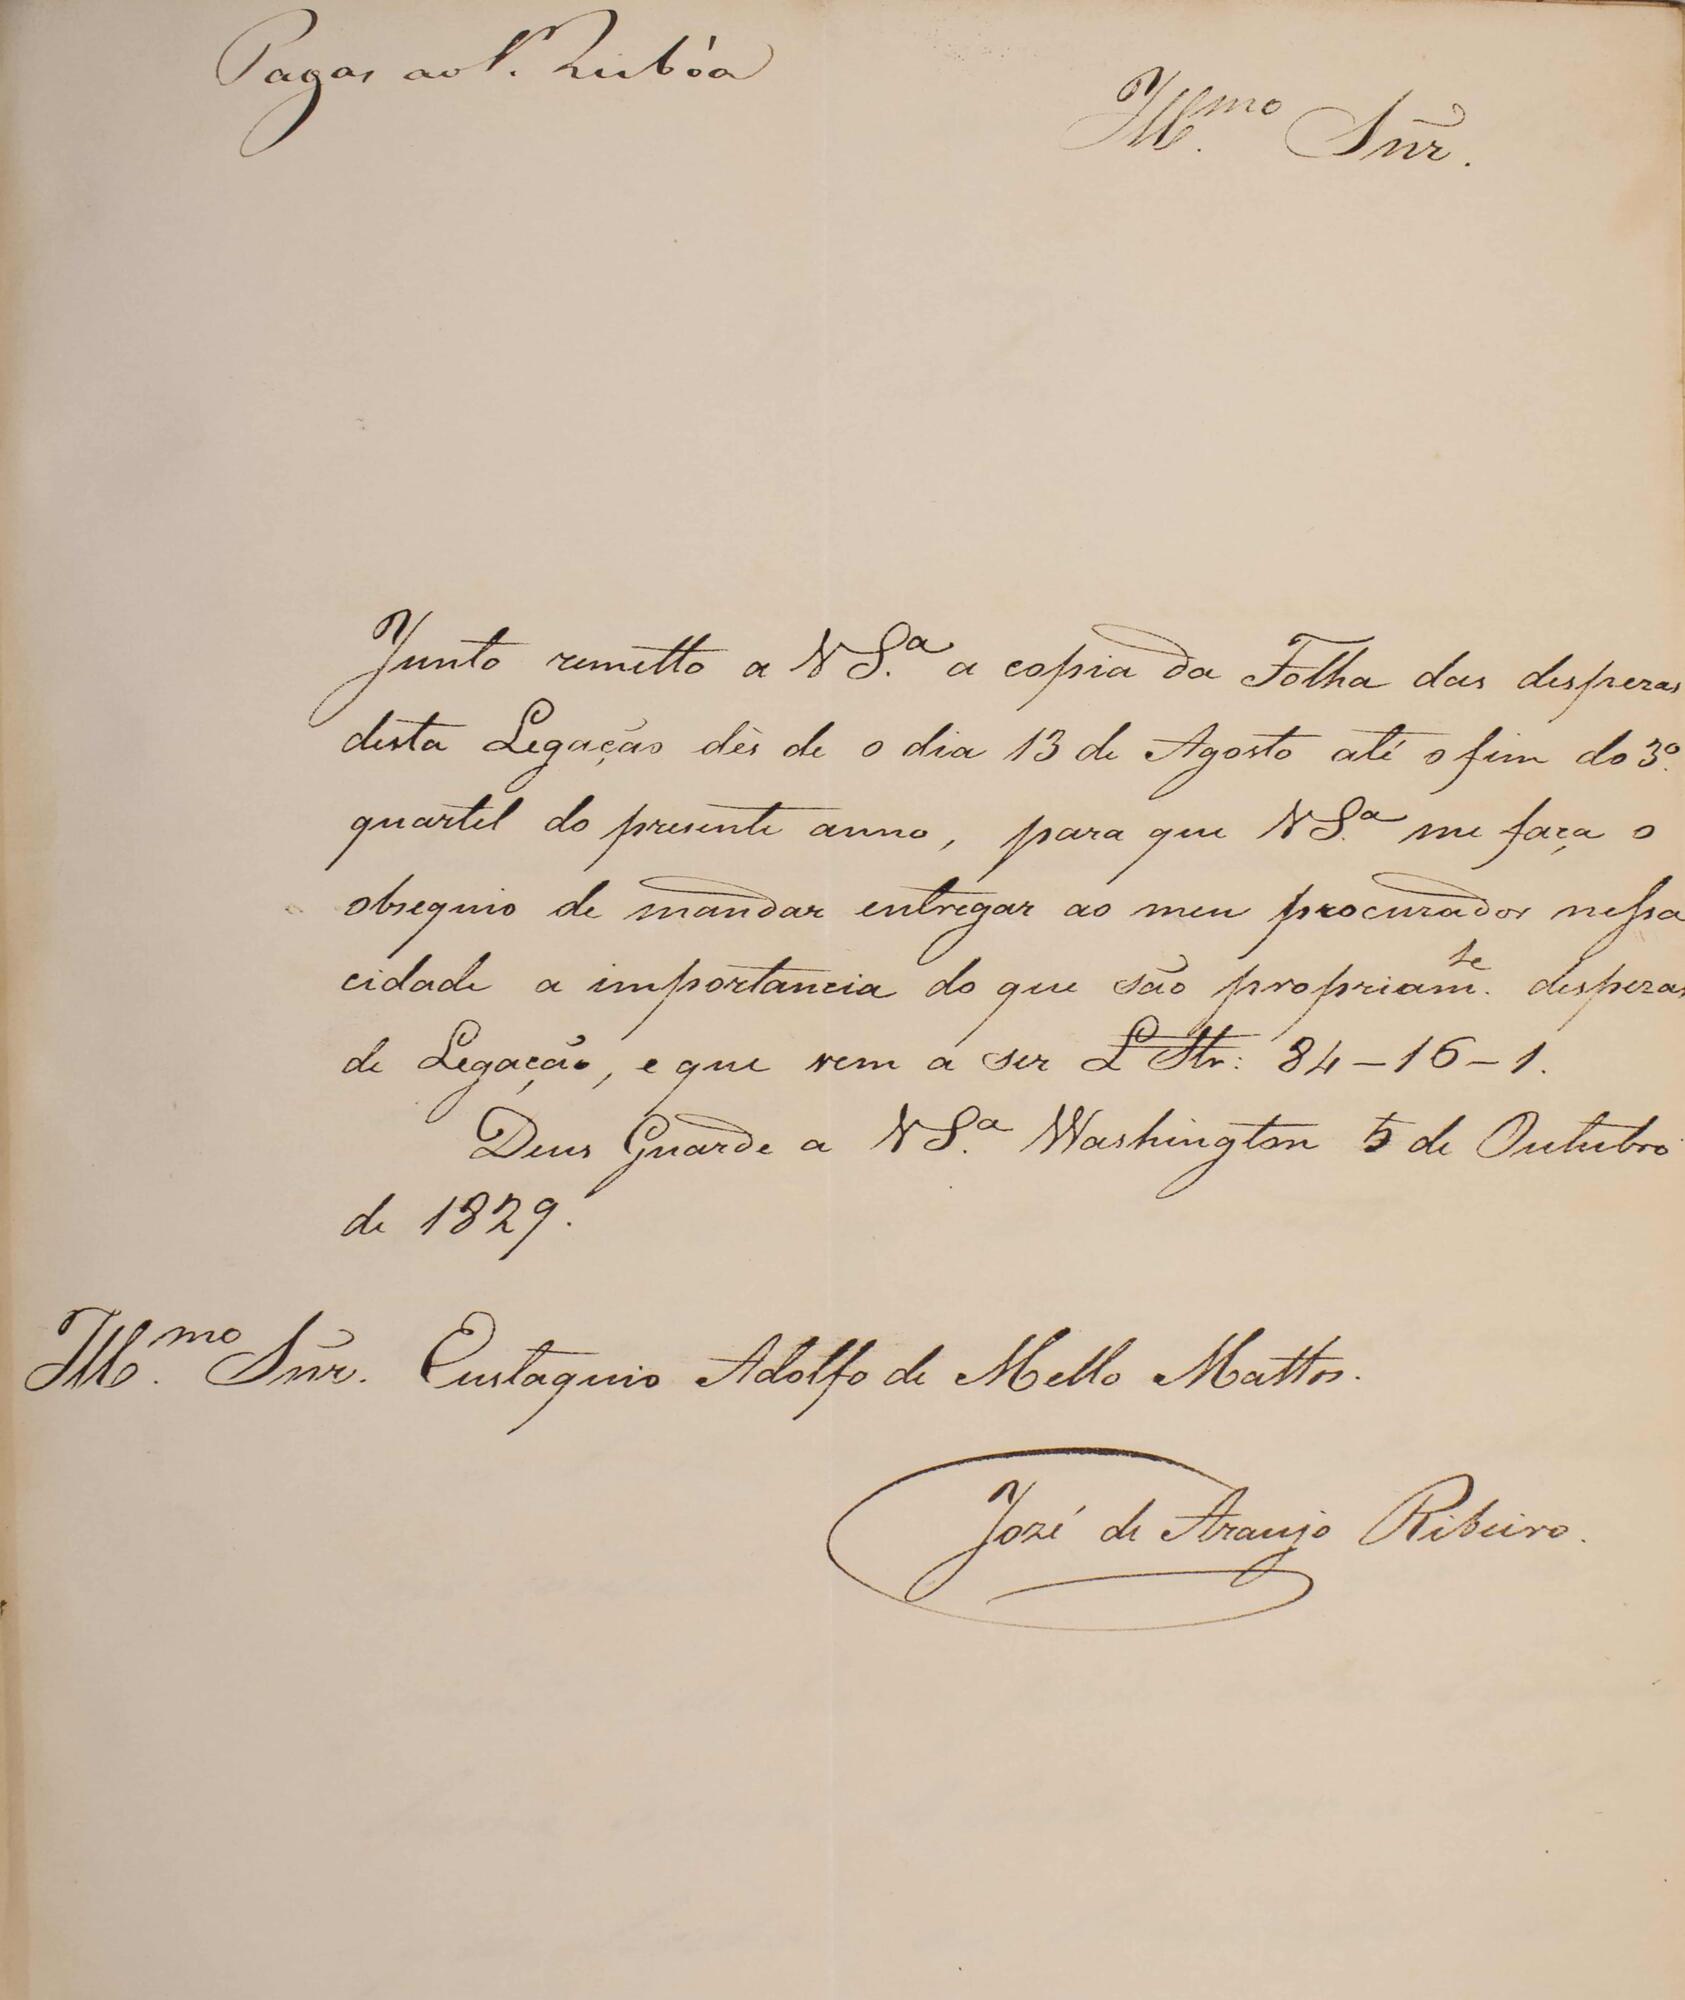 Pagas ao S. Lisbôa
Ill.mo Snr.
Junto remetto a V S.ª a copia da Folha das despezas
desta Legação dês de o dia 13 de Agosto até o fim do 3º
quartel do presente anno, para que V S.ª me faça o
obsequio de mandar entregar ao meu procurador nessa
cidade a importancia do que são propriam.te despezas
de Legação, e que vem a ser L Str: 84-16-1.
Deus Guarde a V S.ª Washington 5 de Outubro
de 1829.
Ill.mo Snr. Eustaquio Adolfo de Mello Mattos.
Jozé de Araujo Ribeiro.